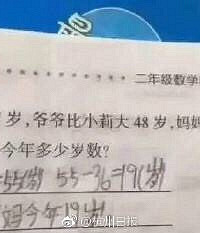 二年级数学
岁,爷爷比小莉大48岁,妈妈
今年多少岁数?
=55(岁) 55-36=19(岁)
妈今年19岁
@杭州日报